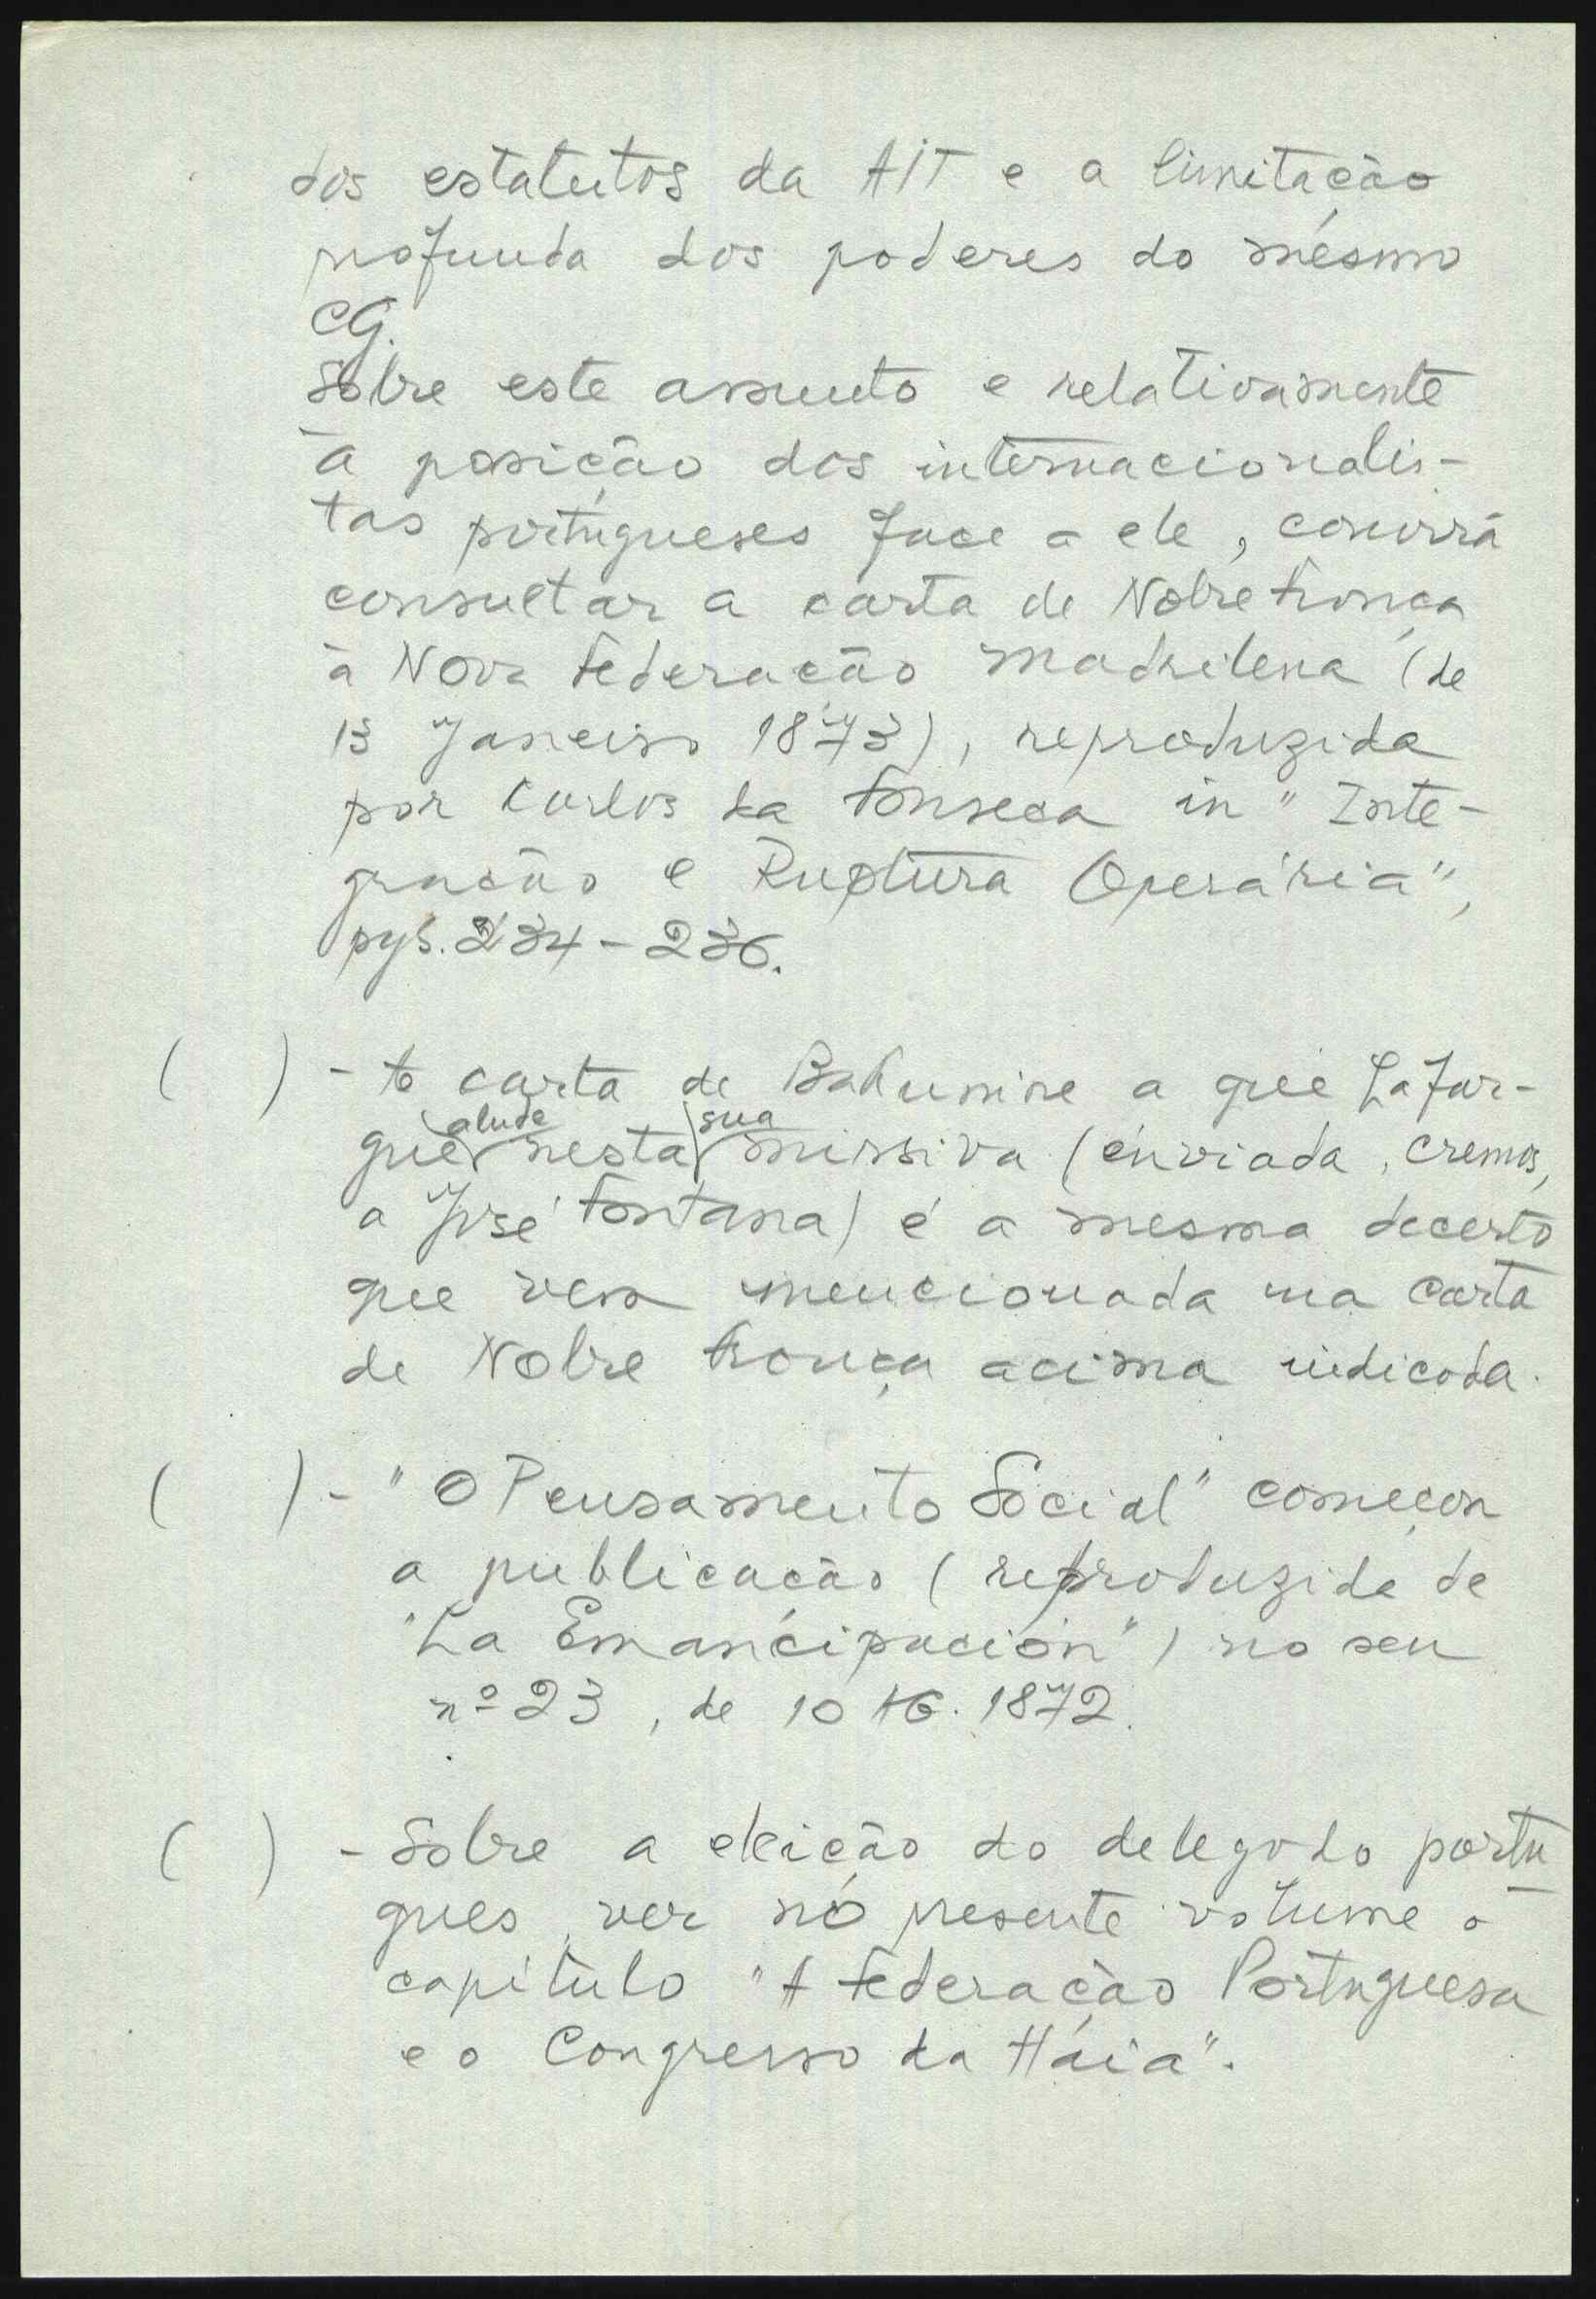 dos estatutos da AIT e a limitação
profunda dos poderes do mesmo
CG.
Sobre este assunto e relativamente
à posição dos internacionalis-
tas portugueses face a ele, convirá
consultar a carta de Nobre França
à Nova Federação Madrilena (de
13 Janeiro 1873), reproduzida
por Carlos da Fonseca in "Inte-
gração e Ruptura Operária",
pgs. 234-236.
( ) - A carta de Bakunine a que Lafar-
gue alude nesta sua missiva (enviada, cremos,
a José Fontana) é a mesma decerto
que vem mencionada na carta
de Nobre França acima indicada.
( ) - "O Pensamento Social" começou
a publicação (reproduzida de
"La Emancipación") no seu
nº 23, de 10 AG. 1872.
( ) - Sobre a eleição do delegado portu
guês, ver no presente volume o
capítulo "A Federação Portuguesa
e o Congresso da Háia".